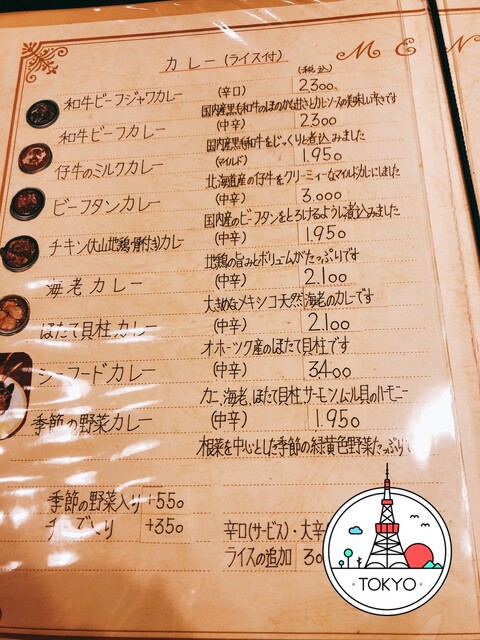 MEN
カレー(ライス付)
(税込)
和牛ビーフジャワカレー (辛口) 2300.
国内産黒毛和牛のほのかな甘さとカレーソースの美味しい辛さです
和牛ビーフカレー (中辛) 2300
国内産黒毛和牛をじっくりと煮込みました
仔牛のミルクカレー (マイルド) 1.950
北海道産の仔牛をクリーミィーなマイルドカレーにしました
ビーフタンカレー (中辛) 3.000
国内産のビーフタンをとろけるように煮込みました
チキン(大山地鶏骨付き)カレー (中辛) 1.950
地鶏の旨みとボリュームがたっぷりです
海老カレー (中辛) 2.100
大きめなメキシコ天然海老のカレーです
ほたて貝柱カレー (中辛) 2.100
オホーツク産のほたて貝柱です
シーフードカレー (中辛) 3.400
カニ、海老、ほたて貝柱、サーモン、ムール貝のハーモニー
季節の野菜カレー (中辛) 1.950
根菜を中心とした季節の緑黄色野菜たっぷり
季節の野菜入り +550
チーズ入り +350
辛口(サービス)・大辛
ライスの追加 30
TOKYO